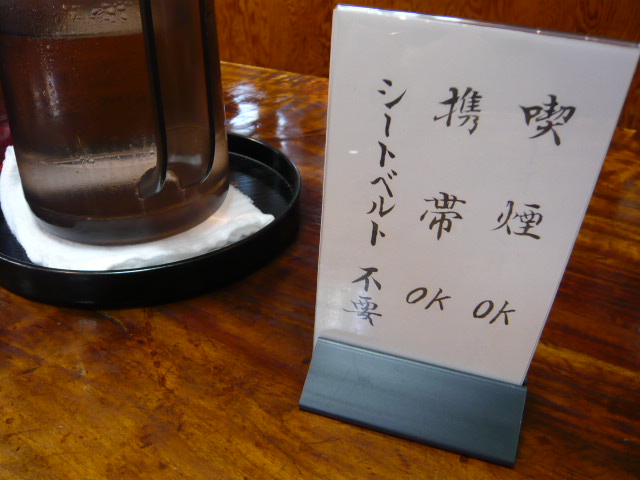 喫煙OK
携帯OK
シートベルト不要